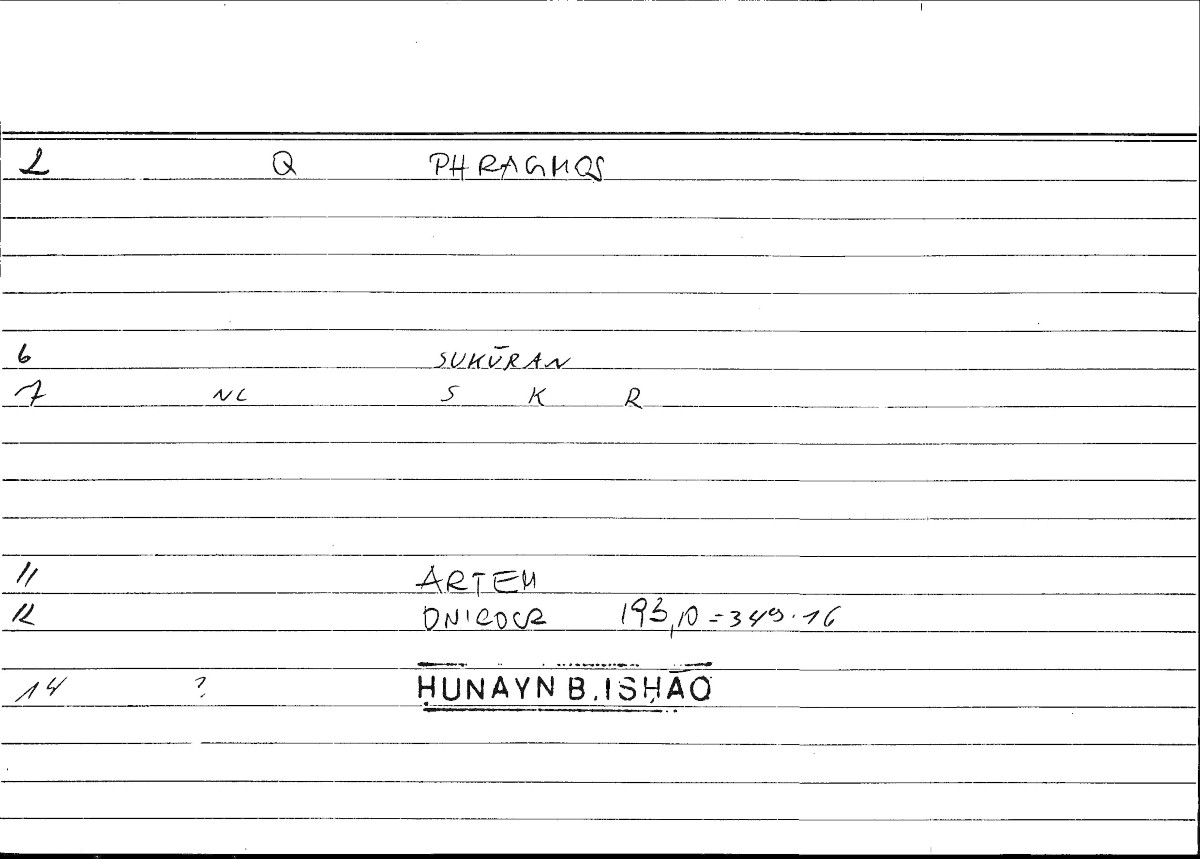 2 Q PHRAGMOS
6 SUKŪRAN
7 NC S K R
11 ARTEM
12 ONIROCR 193,10 = 349.16
14 ? ḤUNAYN B. ISḤĀQ